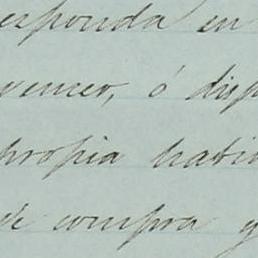 esponda en
vencer, ó disp
propia habi
de compra y